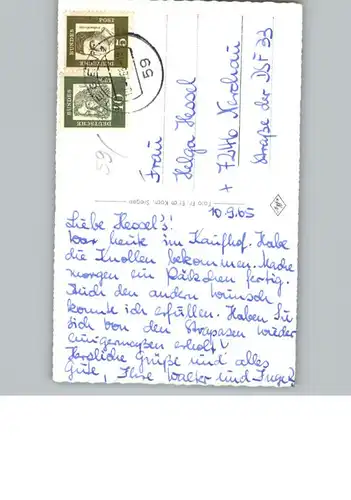 DEUTSCHE
BUNDES
POST
5
DEUTSCHE
BUNDES
10
59
59/
Frau
Helga Hessel
+ 7246 Nerchau
Straße der DSF 33
10.9.65
Liebe Hessel's!
War heute im Kaufhof. Habe
die Knollen bekommen. Mache
morgen ein Päckchen fertig.
Auch den andern Wunsch
konnte ich erfüllen. Haben Sie
sich von den Strapasen wieder
einigermaßen erholt?
Herzliche Grüße und alles
Gute, Ihre Walter und Inge